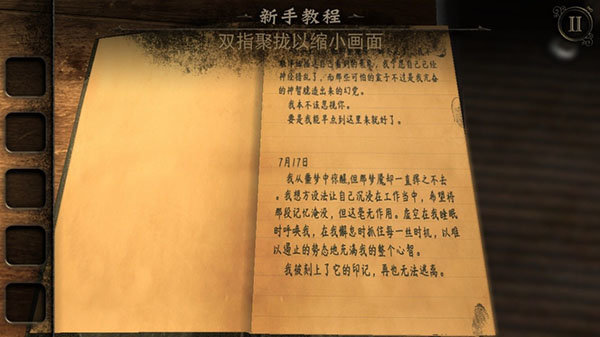 新手教程
双指聚拢以缩小画面
神经错乱了，而那些可怕的影子不过是我亢奋
的神智臆造出来的幻觉。
我本不该忽视你。
要是我能早点到这里来就好了。
7月17日
我从噩梦中惊醒,但那梦魇却一直挥之不去
。我想方设法让自己沉浸在工作当中，希望将
那段记忆淹没，但这毫无作用。虚空在我睡眠
时呼唤我，在我懈怠时抓住每一丝时机，以难
以遏止的势态地充满我的整个心智。
我被刻上了它的印记，再也无法逃离。